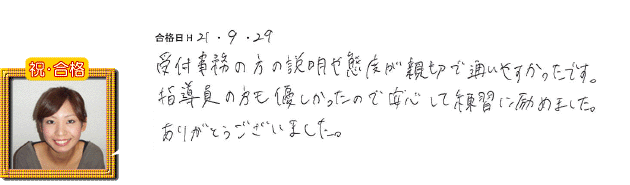 合格日H 21・9・29
祝・合格
受付事務の方の説明や態度が親切で通いやすかったです。
指導員の方も優しかったので安心して練習に励めました。
ありがとうございました。